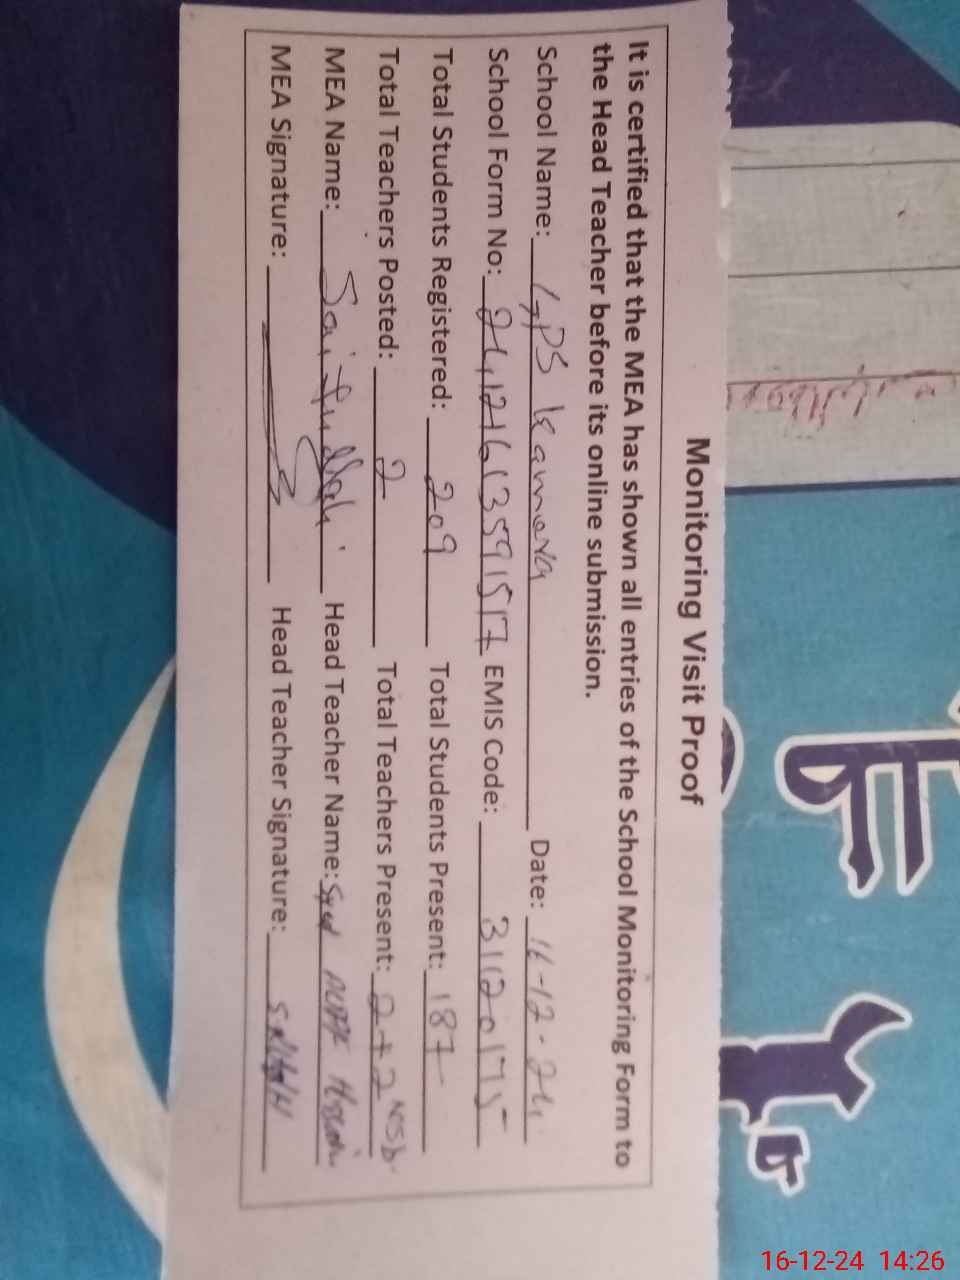 Monitoring Visit Proof
It is certified that the MEA has shown all entries of the School Monitoring Form to
the Head Teacher before its online submission.
School Name: GPS Kannera Date: 16-12-24
School Form No: 24121613591517 EMIS Code: 31120175
Total Students Registered: 209 Total Students Present: 187
Total Teachers Posted: 2 Total Teachers Present: 2+2 NSB
MEA Name: Saif Head Teacher Name: Syed
MEA Signature: Head Teacher Signature:
16-12-24 14:26